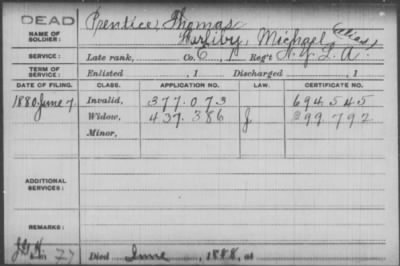 DEAD
NAME OF SOLDIER:
Prentice, Thomas
Michael (Alias)
SERVICE:
Late rank, Co. C, 1 Reg't N.Y. L. A.
TERM OF SERVICE:
Enlisted , 1 Discharged , 1
DATE OF FILING. CLASS. APPLICATION NO. LAW. CERTIFICATE NO.
1880. June 7. Invalid, 377.073 694.545
Widow, 437.386 J. 299.792
Minor,
ADDITIONAL SERVICES:
REMARKS:
Died June , 1888, at